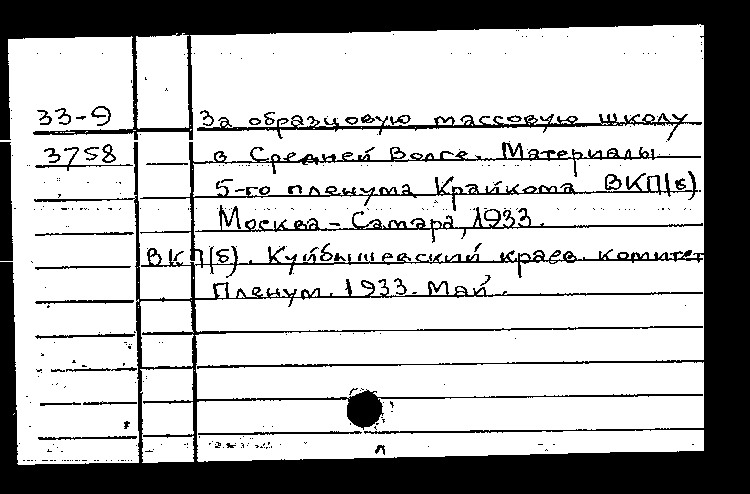 33-9 За образцовую массовую школу
3758 в Средней Волге. Материалы
5-го пленума Крайкома ВКП(б)
Москва - Самара, 1933.
ВКП(б). Куйбышевский краев. комитет
Пленум. 1933. Май.
л